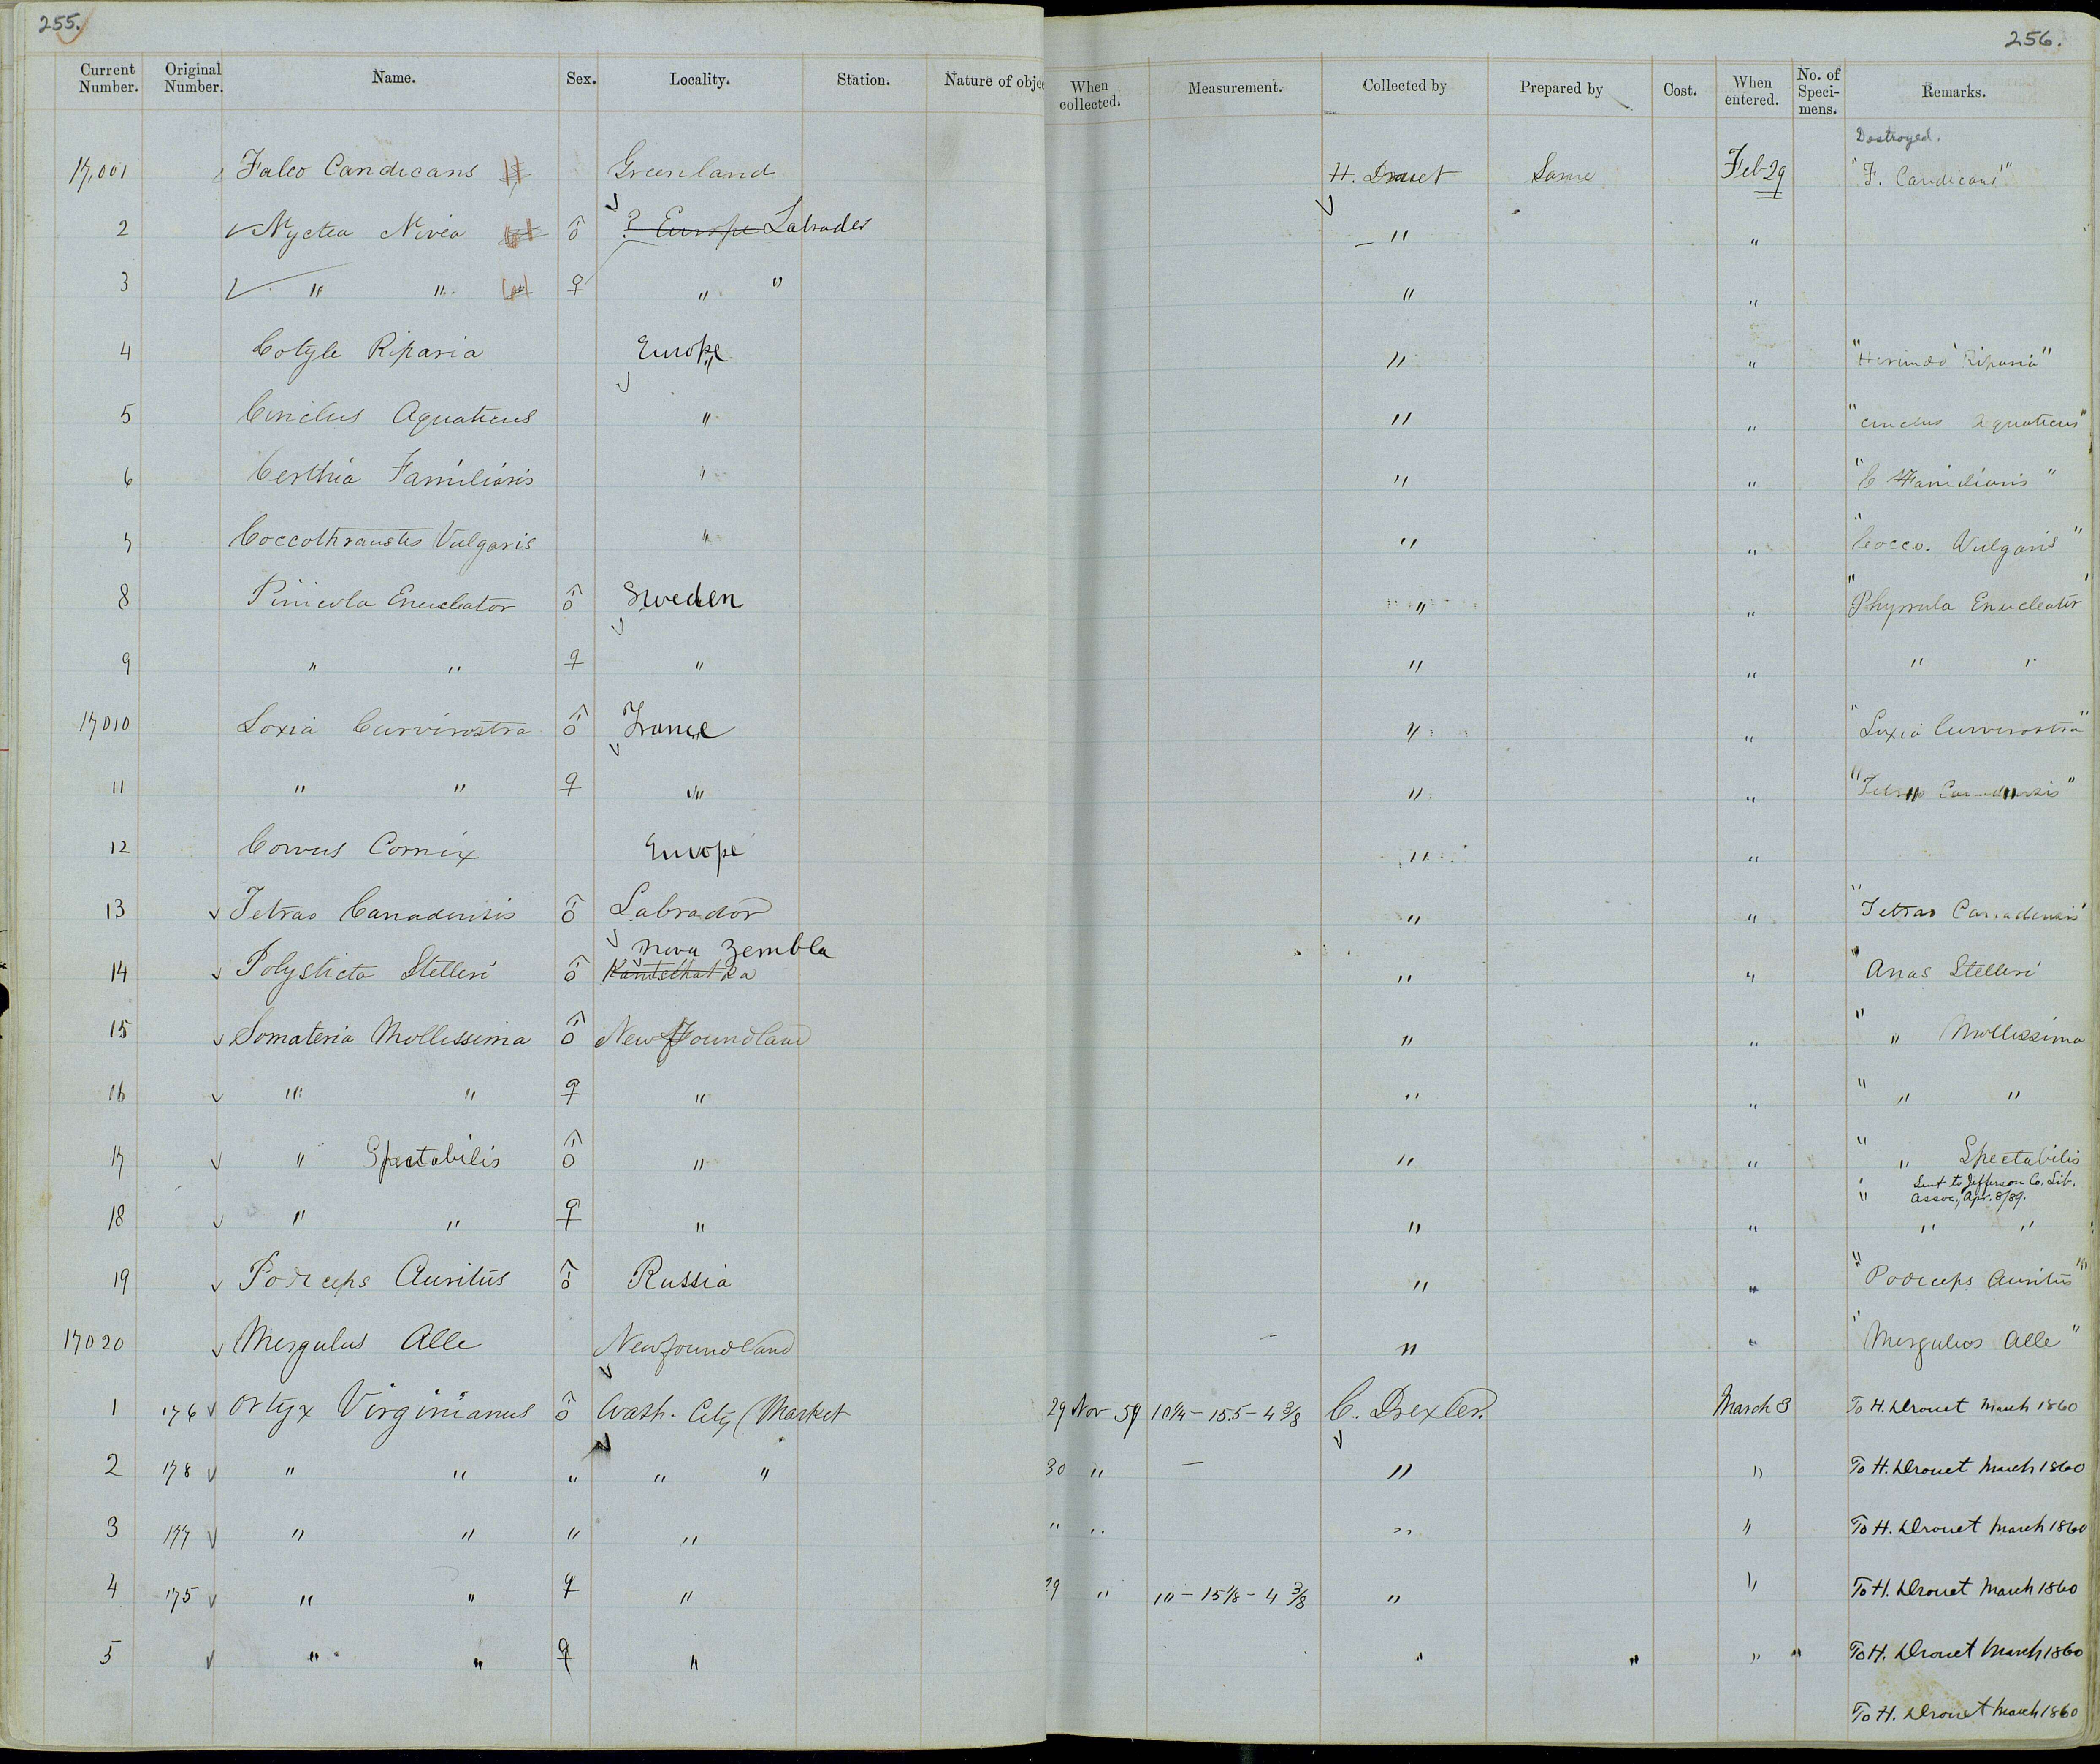 255.
256.
Current Number. Original Number. Name. Sex. Locality. Station. Nature of obje When collected. Measurement. Collected by Prepared by Cost. When entered. No. of Speci-mens. Remarks.
Destroyed.
17,001 Falco Candicans Greenland H. Drouet Same Feb 29 "F. Candicans"
2 ✓ Nyctea Nivea ♂ ? Europe Labrador " "
3 ✓ " " ♀ " " " "
4 Cotyle Riparia Europe " " "Hirundo Riparia"
5 Cinclus Aquaticus " " " "Cinclus Aquaticus"
6 Certhia Familiaris " " " "C Familiaris"
7 Coccothraustes Vulgaris " " " "Cocco. Vulgaris"
8 Pinicola Enucleator ♂ Sweden " " "Phyrrula Enucleator"
9 " " ♀ " " " " "
17010 Loxia Curvirostra ♂ France " " "Loxia Curvirostra"
11 " " ♀ " " " "Tetrao Canadensis"
12 Corvus Cornix Europe " "
13 ✓ Tetrao Canadensis ♂ Labrador " " "Tetrao Canadensis"
Nova Zembla
14 ✓ Polysticta Stelleri ♂ Kamtschatka " " "Anas Stelleri
15 ✓ Somateria Mollissima ♂ Newfoundland " " " " Mollissima
16 ✓ " " ♀ " " " " " "
17 ✓ " Spectabilis ♂ " " " " " Spectabilis
Sent to Jefferson Co. Lib.
Assoc., Apr. 8/89.
18 ✓ " " ♀ " " " " " "
19 ✓ Podiceps Auritus ♂ Russia " " "Podiceps Auritus"
17020 ✓ Mergulus Alle Newfoundland " " "Mergulus Alle"
1 176 ✓ Ortyx Virginianus ♂ Wash. City (Market 29 Nov 59 10¼ - 15.5 - 4 3/8 C. Drexler. March 3 To H. Drouet March 1860
2 178 ✓ " " " " " 30 " — " " To H. Drouet March 1860
3 177 ✓ " " " " " " " " To H. Drouet March 1860
4 175 ✓ " " ♀ " 29 " 10 - 15 1/8 - 4 3/8 " " To H. Drouet March 1860
5 ✓ " " ♀ " " " " " To H. Drouet March 1860
To H. Drouet March 1860